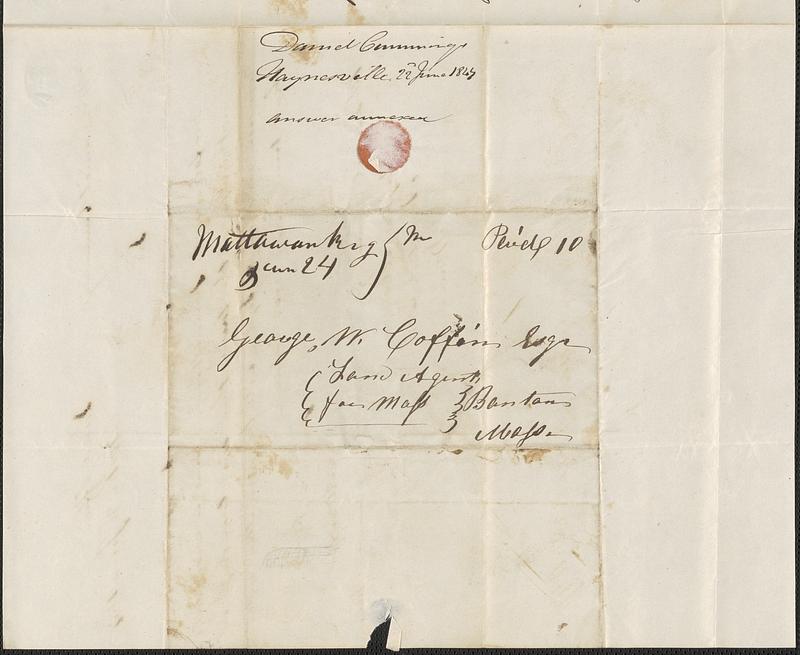 Daniel Cummings
Haynesville 22d June 1847
answer annexed
Mattawamkeag Me
Jun 24
Paid 10
George, W. Coffin Esqr
Land Agent
for Mass
Boston
Mass